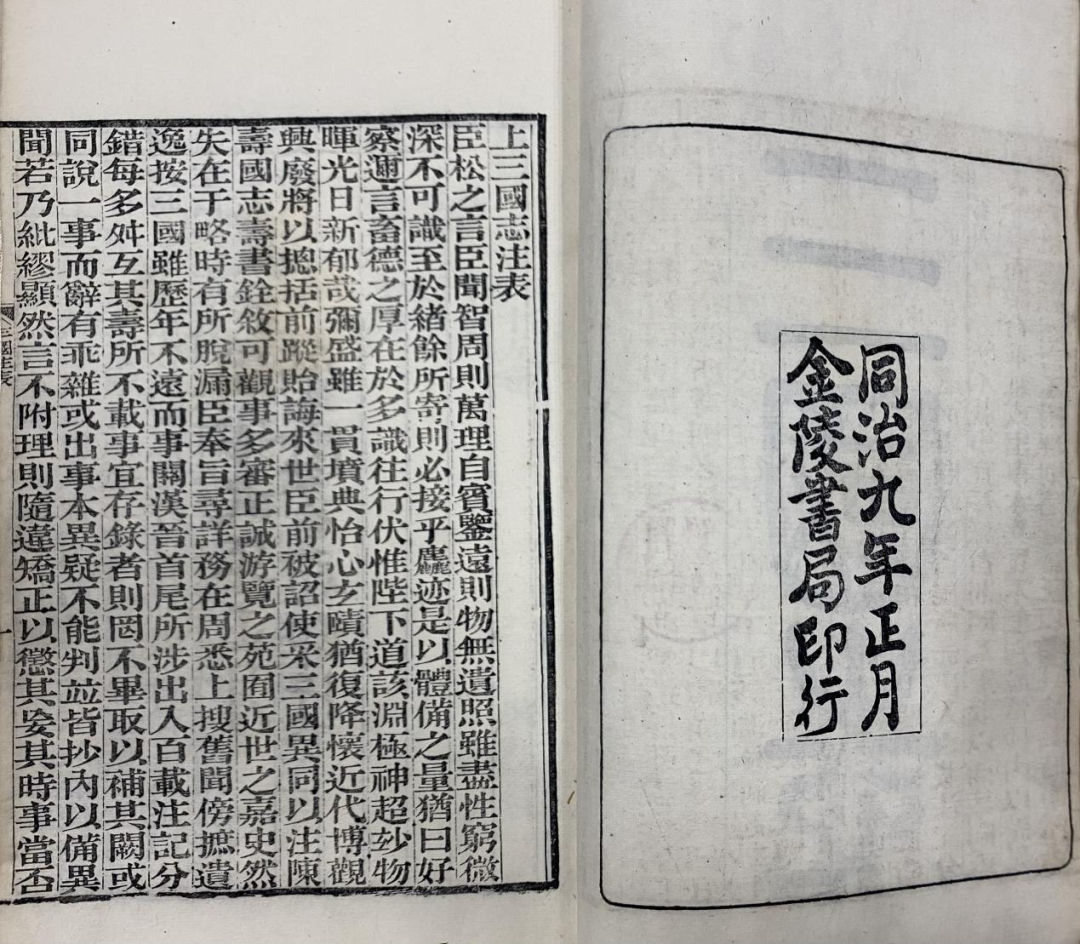 同治九年正月
金陵書局印行
上三國志注表
臣松之言臣聞智周則萬理自賓鑒遠則物無遺照雖盡性窮微
深不可識至於緒餘所寄則必接乎麤迹是以體備之量猶曰好
察邇言畜德之厚在於多識往行伏惟陛下道該淵極神超玅物
暉光日新郁哉彌盛雖一貫墳典怡心玄賾猶復降懷近代博觀
興廢將以摠括前蹤貽誨來世臣前被詔使采三國異同以注陳
壽國志壽書銓敘可觀事多審正誠游覽之苑囿近世之嘉史然
失在于略時有所脫漏臣奉旨尋詳務在周悉上搜舊聞傍摭遺
逸按三國雖歷年不遠而事關漢晉首尾所涉出入百載注記分
錯每多舛互其壽所不載事宜存錄者則罔不畢取以補其闕或
同說一事而辭有乖雜或出事本異疑不能判並皆抄內以備異
聞若乃紕繆顯然言不附理則隨違矯正以懲其妄其時事當否
三國注表
一